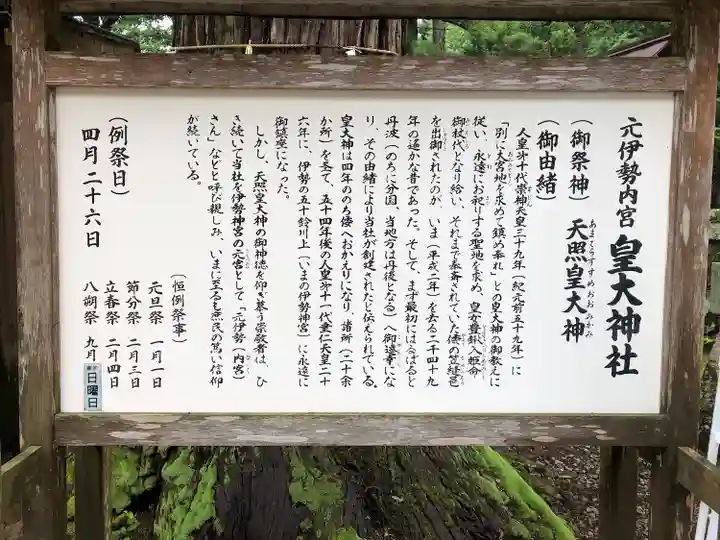 元伊勢内宮 皇大神社
(御祭神) 天照皇大神
あまてらすすめおおみかみ
(御由緒)
人皇第十代崇神天皇三十九年(紀元前五十九年)に
「別に大宮地を求めて鎮め奉れ」との皇大神の御教えに
従い、永遠にお祀りする聖地を求め、皇女豊鋤入姫命
御杖代となり給い、それまで奉斎されていた倭の笠縫邑
を出御されたのが、いま(平成二年)を去る二千四十九
年の遥かな昔であった。そして、まず最初にはるばると
丹波(のちに分国、当地方は丹後となる)へ御遷幸にな
り、その由緒により当社が創建されたと伝えられている。
皇大神は四年ののち倭へおかえりになり、諸所(二十余
か所)を経て、五十四年後の人皇第十一代垂仁天皇二十
六年に、伊勢の五十鈴川上(いまの伊勢神宮)に永遠に
御鎮座になった。
しかし、天照皇大神の御神徳を仰ぎ慕う崇敬者は、ひ
き続いて当社を伊勢神宮の元宮として「元伊勢(内宮)
さん」などと呼び親しみ、いまに至るも庶民の篤い信仰
が続いている。
(恒例祭事)
元旦祭 一月一日
節分祭 二月三日
立春祭 二月四日
八朔祭 九月 日曜日
(例祭日)
四月二十六日